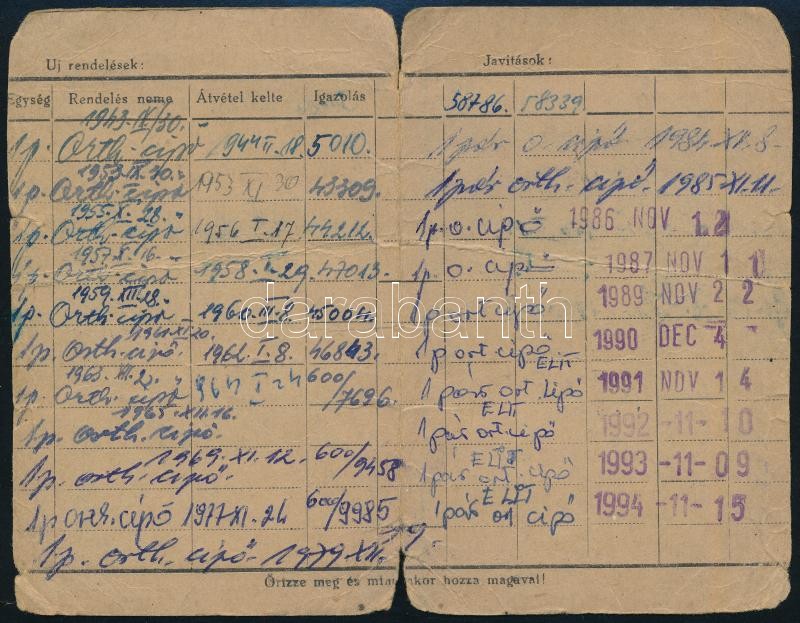 Uj rendelések:
Egység Rendelés neme Átvétel kelte Igazolás
1943. IX/30.
1p. Orth. cipő 1944 II. 18. 5010.
1953. IX. 30.
1p. Orth. cipő 1953 XI 30 43309.
1955. X. 28.
1p. Orth. cipő 1956 I. 17 44212.
1957. X. 16.
1p. Orth. cipő 1958. I. 29. 47013.
1959. XII. 18.
1p. Orth. cipő 1960. 45004.
1961. XI. 20.
1p. orth. cipő. 1962. I. 8. 46843.
1963. XII.
1p. Orth. cipő 964 I 24 600/7696.
1965. XII. 16.
1p. orth. cipő.
1969. XI. 12. 600/9458
1p. orth. cipő.
1p orth. cipó 1977 XI. 24 600/9985
1p. orth. cipő. 1979. XII.
Javitások:
58786. 58339
1 pár o. cipő 1984. XI. 8.
1 pár orth. cipő. 1985. XI. 11.
1p. o. cipő 1986 NOV 12
1p. o. cipő 1987 NOV 11
1p ort cipő 1989 NOV 22
1p ort cipő 1990 DEC 4
ELIT
1 pár ort. cipő 1991 NOV 14
ELIT
1 pár ort cipő 1992 -11- 10
ELIT
1 pár ort. cipő 1993 -11- 09
ELIT
1 pár ort cipő 1994 -11- 15
Őrizze meg és mindenkor hozza magával!
darabanth